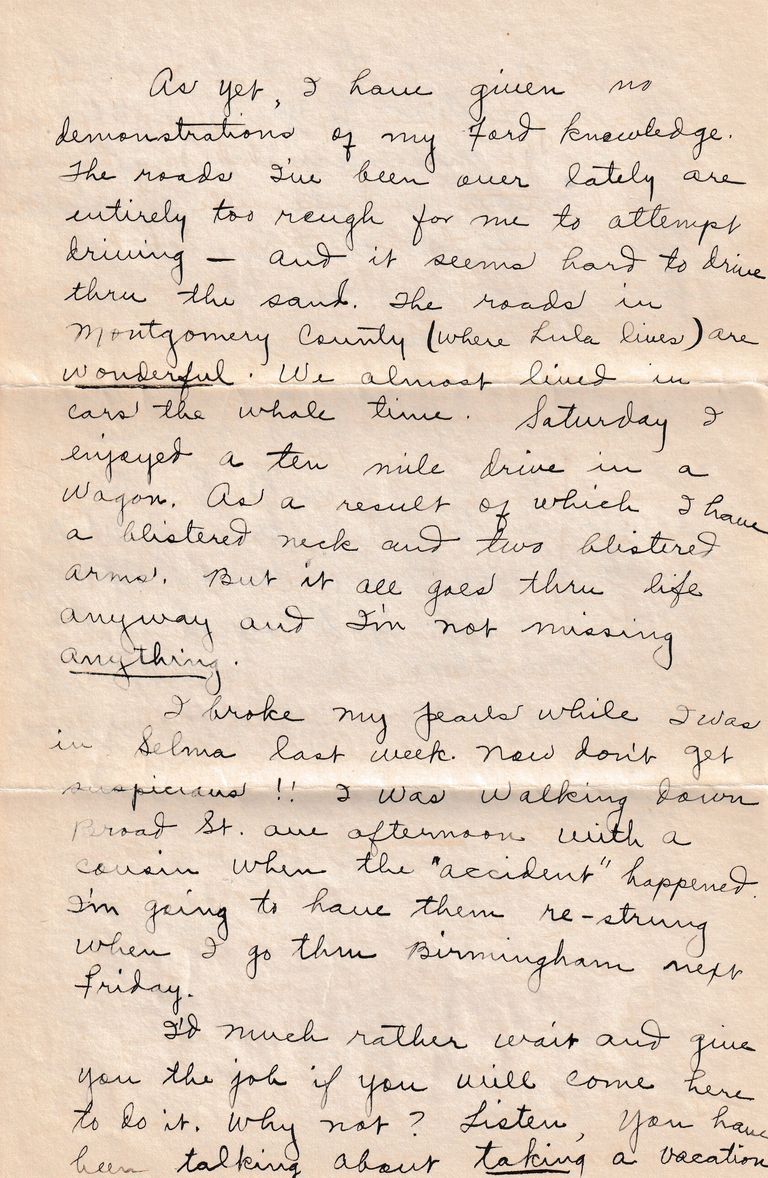 As yet, I have given no
demonstrations of my Ford knowledge.
The roads I've been over lately are
entirely too rough for me to attempt
driving — and it seems hard to drive
thru the sand. The roads in
Montgomery County (where Lula lives) are
wonderful. We almost lived in
cars the whole time. Saturday I
enjoyed a ten mile drive in a
wagon. As a result of which I have
a blistered neck and two blistered
arms. But it all goes thru life
anyway and I'm not missing
anything.
I broke my pearls while I was
in Selma last week. Now don't get
suspicious!! I was walking down
Broad St. one afternoon with a
cousin when the "accident" happened.
I'm going to have them re-strung
when I go thru Birmingham next
Friday.
I'd much rather wait and give
you the job if you will come here
to do it. Why not? Listen, you have
been talking about taking a vacation